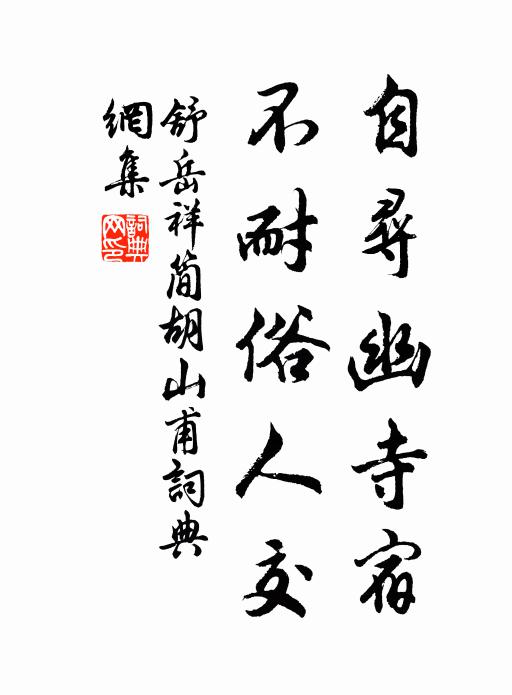 自尋幽寺宿
不耐俗人交
舒岳祥簡胡山甫詞典
網集
詞典
网印